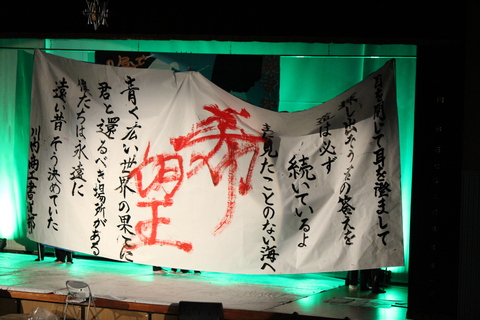 目を閉じて耳を澄まして
探し出そうその答えを
は必ず
続いているよ
見たことのない海へ
希望
青く広い世界の果てに
君と還るべき場所がある
僕たちは永遠に
遠い昔 そう決めていた
川内商工書道部